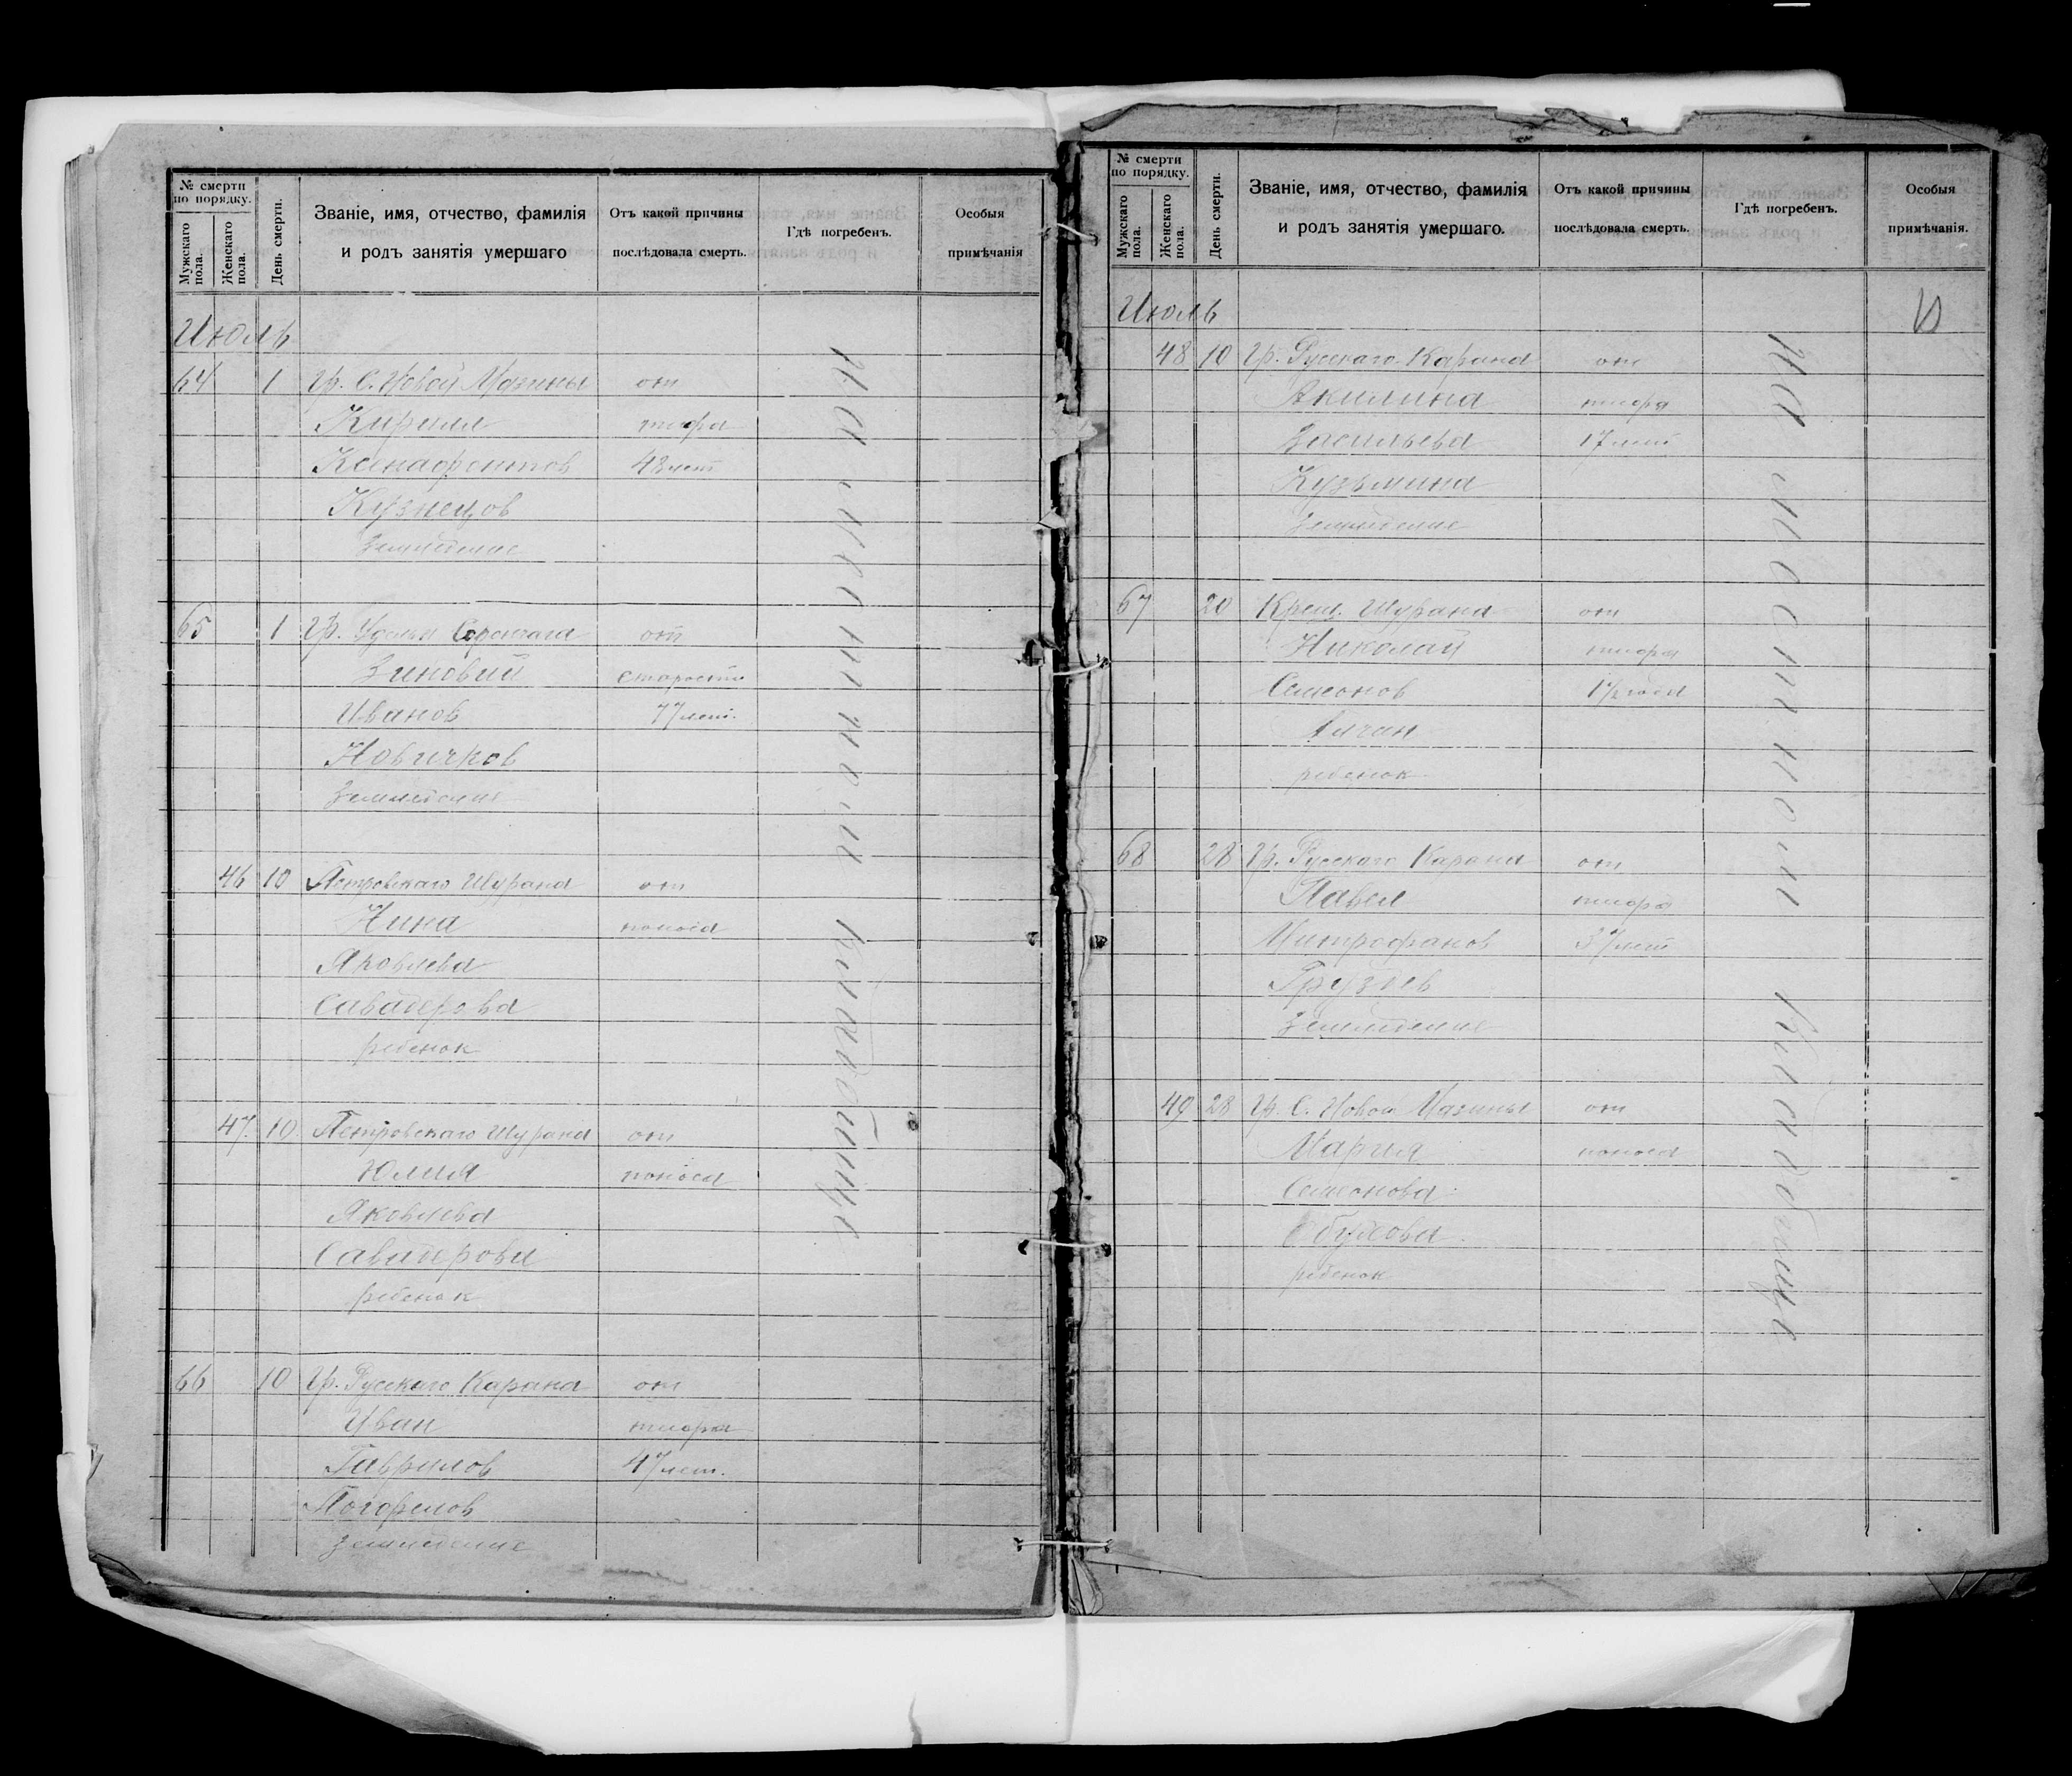 № смерти
по порядку.
Мужскаго
пола.
Женскаго
пола.
День смерти.
Званіе, имя, отчество, фамилія
и родъ занятія умершаго
Отъ какой причины
послѣдовала смерть.
Гдѣ погребенъ.
Особыя
примѣчанія
Июль
64 1 Гр. С. Новой Мазины от
Кирилл тифа
Ксенафонтов 48 лет
Кузнецов
Земледелие
65 1 Гр. от
Зиновий старости
Иванов 77 лет.
Новичков
Земледелие
46 10 Петровскаго Шурана от
Нина поноса
Яковлева
Саватерова
ребенок
47. 10 Петровскаго Шурана от
Юлия поноса
Яковлева
Саватерова
ребенок
66 10 Гр. Русскаго Карана от
Иван тифа
Гаврилов 47 лет.
Погорелов
Земледелие
На местном кладбище
№ смерти
по порядку.
Мужскаго
пола.
Женскаго
пола.
День смерти.
Званіе, имя, отчество, фамилія
и родъ занятія умершаго.
Отъ какой причины
послѣдовала смерть.
Гдѣ погребенъ.
Особыя
примѣчанія.
Июль
48 10 Гр. Русскаго Карана от
Акилина тифа
Васильева 17 лет
Кузьмина
Земледелие
67 20 Крещ. Шурана от
Николай тифа
Семенов 1½ года
ребенок
68 28 Гр. Русскаго Карана от
Павел тифа
Митрофанов 37 лет
Груздев
Земледелие
49 28 Гр. С. Новой Мазины от
Мария поноса
Семенова
ребенок
На местном кладбище